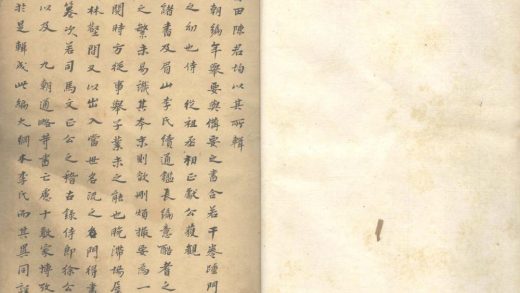 田陳君均以其所輯
朝編年舉要與備要之書合若干卷踵門
之初也侍 從祖丞相正獻公獲觀
諸書及眉山李氏續通鑑長編意酷嗜之
之繁未易識其本末則欲刪煩撮要為一
閱時方從事舉子業未之能也晚滯場屋
林暫間又以出入當世名流之門得盡
纂次若司馬文正公之稽古錄侍郎徐公
以及 九朝通略等書亡慮十數家博攷
於是輯成此編大綱本李氏而其異同詳